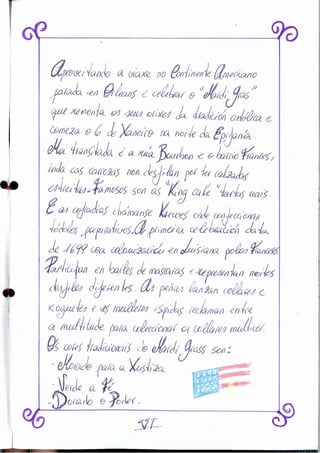 Aproveitando a viaxe no Continente Americano
parada en Orleans e celebrar o "Mardi Grass"
que remonta os seus orixes da tradición católica e
comeza o 6 de Xaneiro na noite da Epifanía.
Máis transitada é a rúa Bourbon e o barrio Francés,
inda cas carrozas non desfilan por ter calzadas
estreitas. Famosos son as "King cake" tartas reais.
E as cofradías chámanse Krewes cada
todolos preparativos. A primeira celebración data
de 1699 coa colonización en Luisiana polos Franceses
Participan en bailes de máscaras e representan moitos
desfiles diferentes. As peñas lanzan collares e
xoguetes e as mulleres espidas reclaman entre
a multitude para coleccionar os collares multicor.
Os cores tradicionais do Mardi Grass son:
- Morado para a Xustiza
- Verde a Fé
- Dorado o Poder.
VI